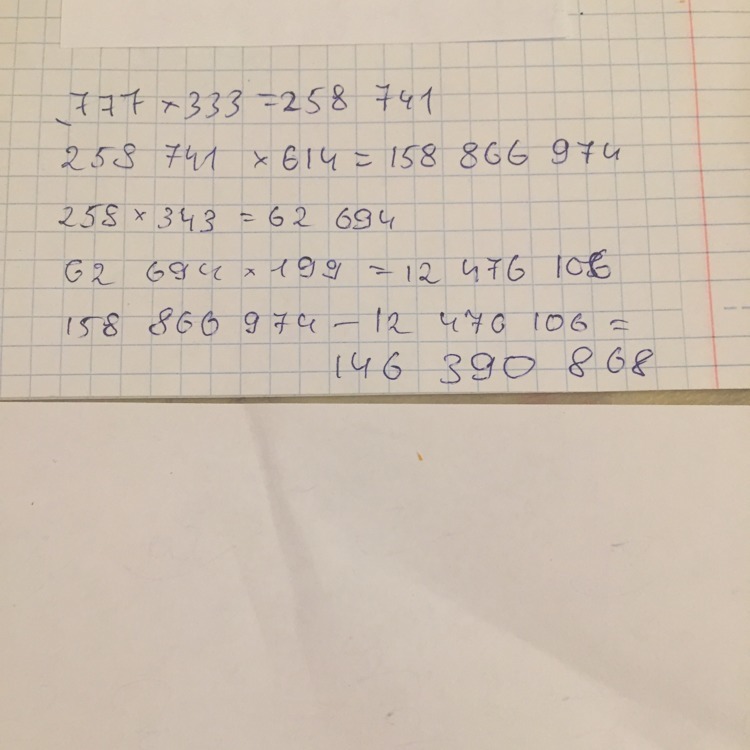 777 × 333 = 258 741
258 741 × 614 = 158 866 974
258 × 343 = 62 694
62 694 × 199 = 12 476 106
158 866 974 – 12 476 106 =
146 390 868